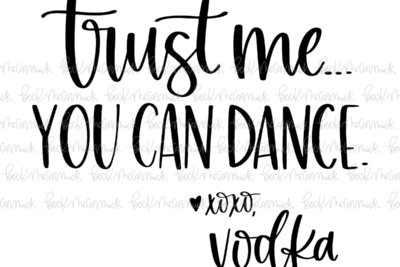 trust me...
YOU CAN DANCE.
♥xoxo,
vodka